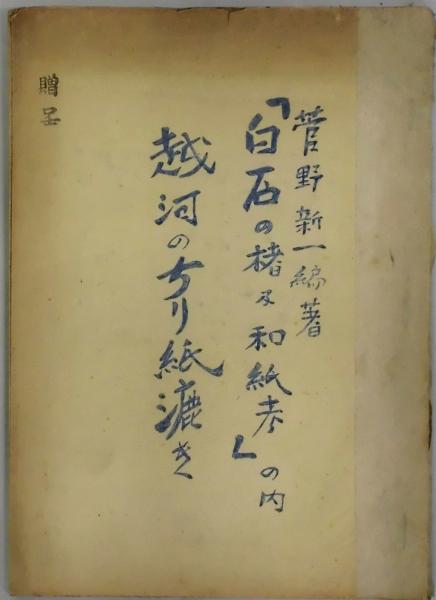 菅野新一編著
「白石の楮及和紙考」の内
越河のちり紙漉き
贈呈